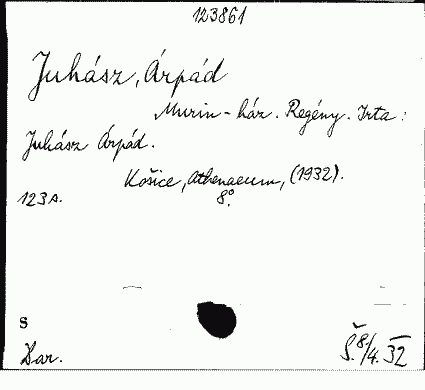 123861
Juhász, Árpád
Murin-ház. Regény. Irta:
Juhász Árpád.
Košice, Athenaeum, (1932).
8°.
123 s.
S
Dar.
Š. 8/4. 32